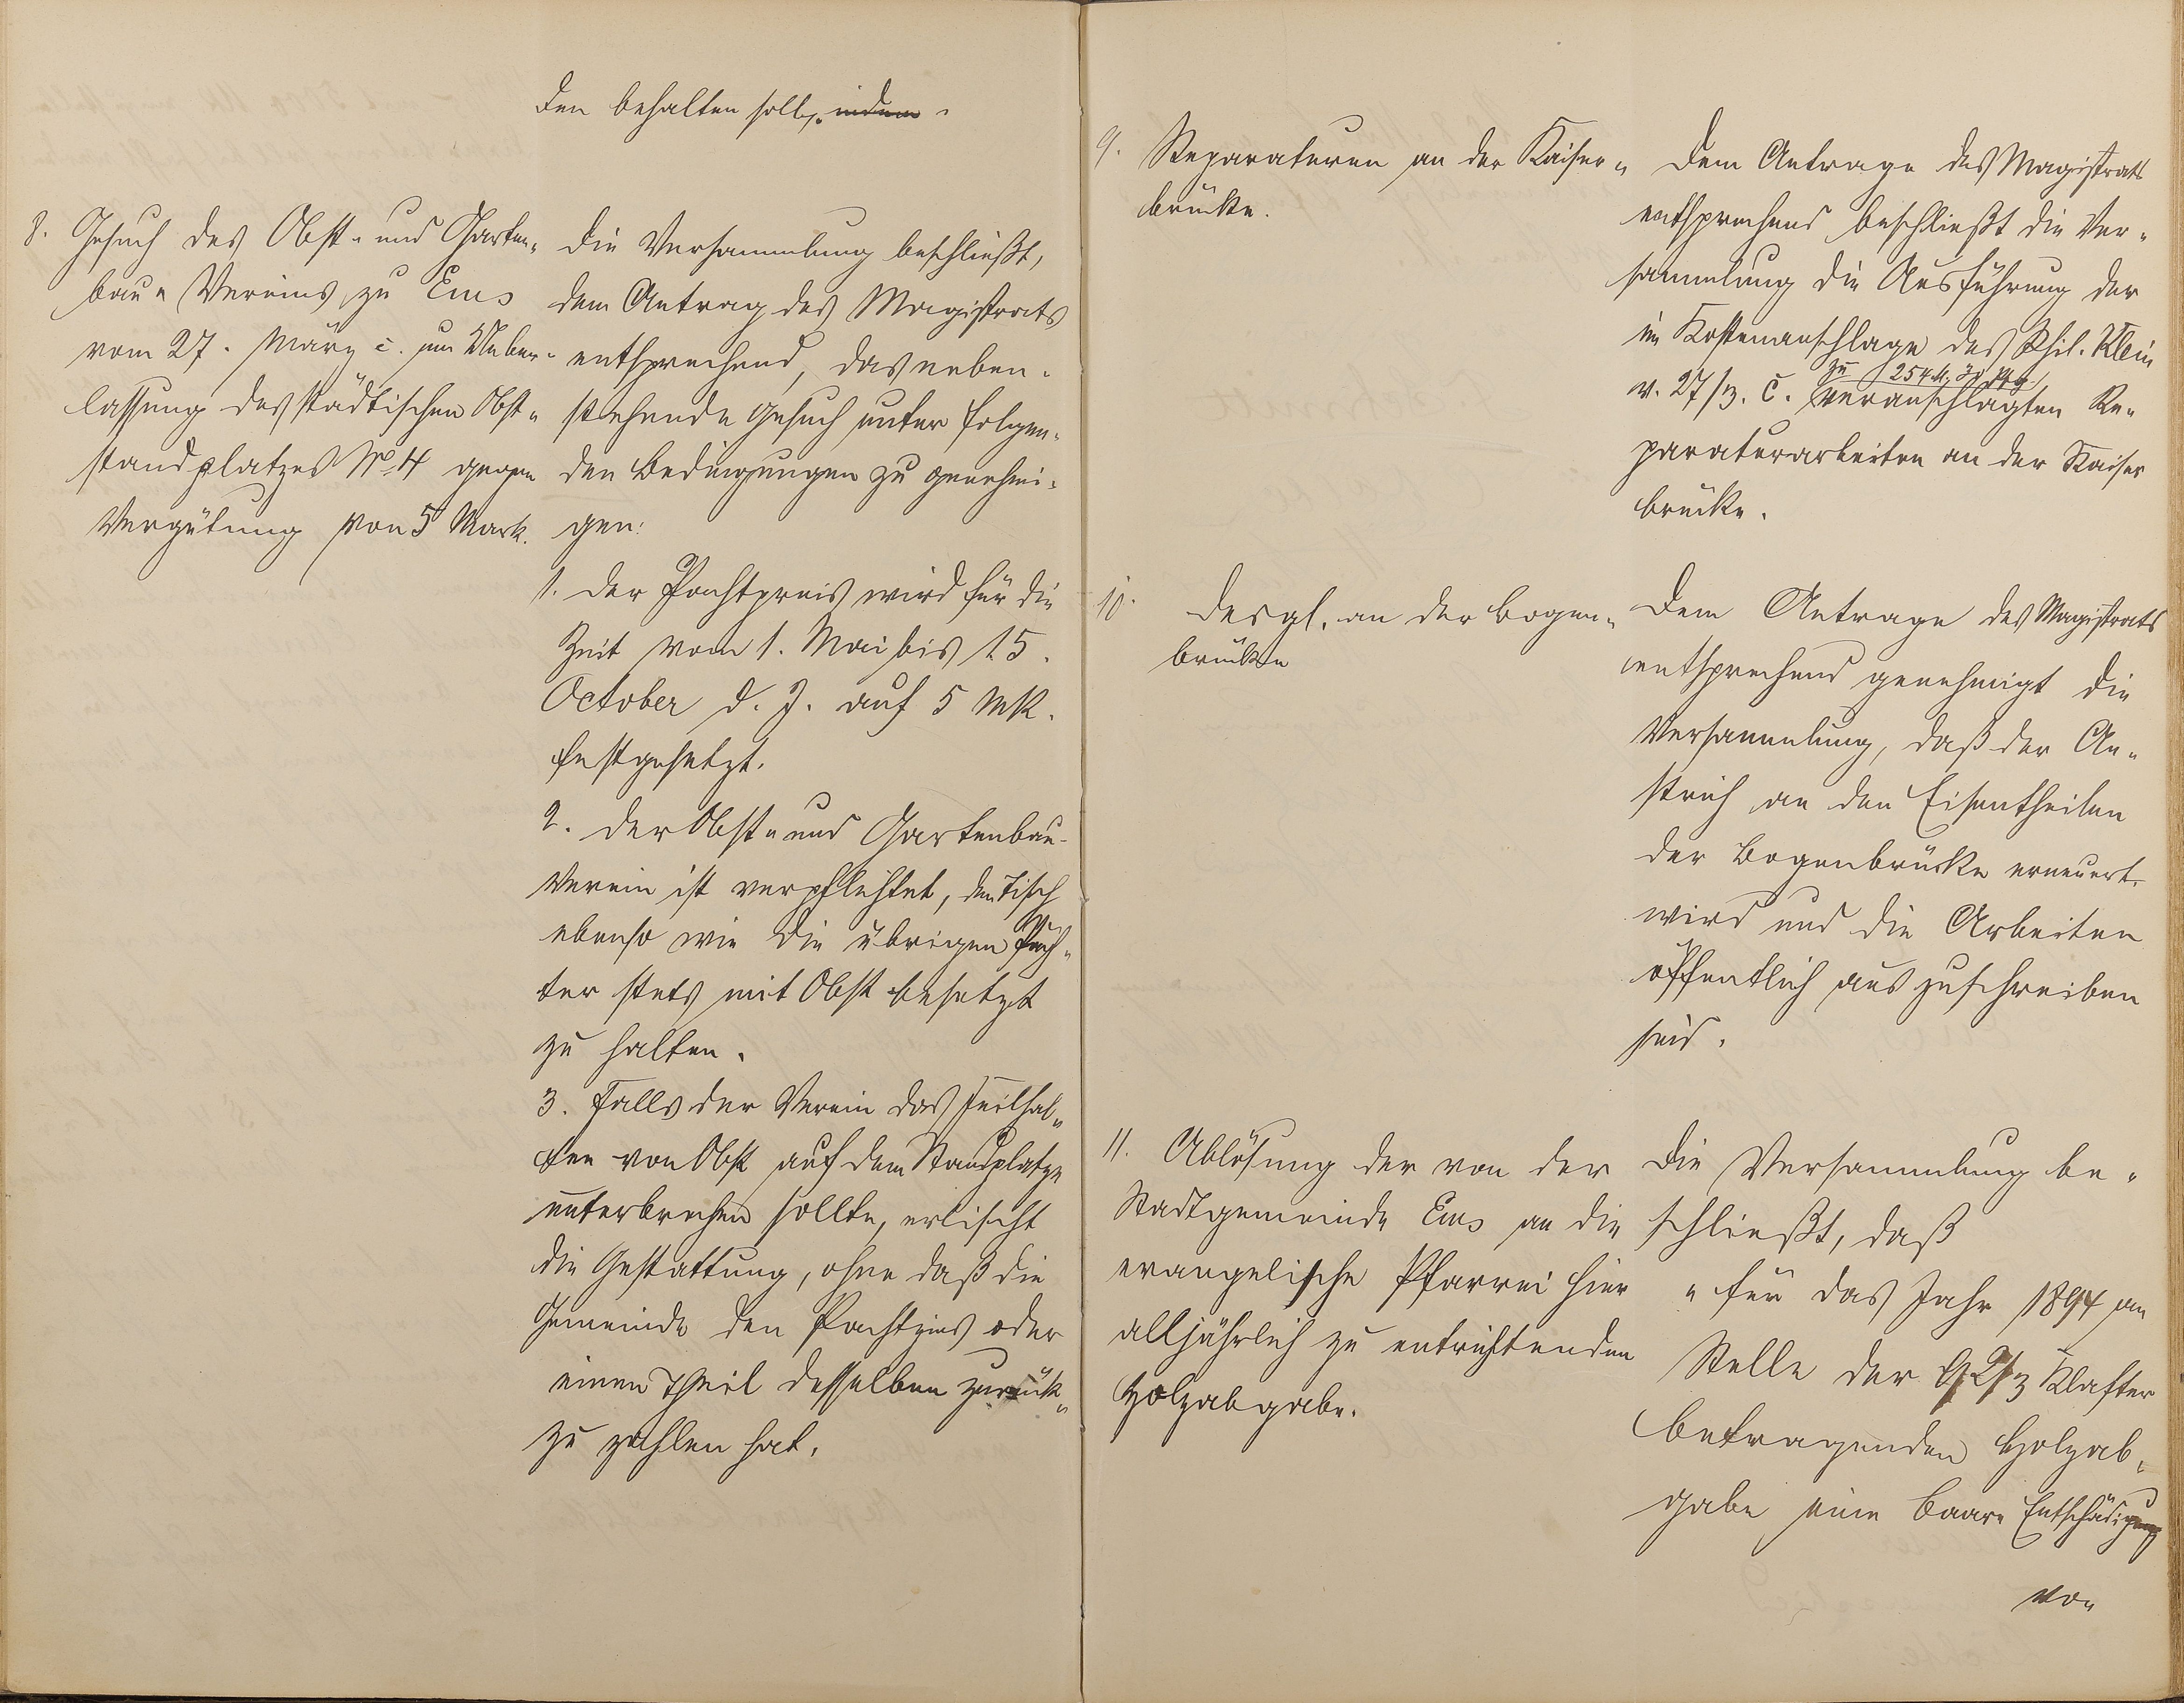 den behalten soll, indem.
8. Gesuch des Obst- und Garten-
bau-Vereins zu Ems
vom 27. März c. um Ueber-
lassung des städtischen Obst-
standplatzes No 4 gegen
Vergütung von 5 Mark.
die Versammlung beschließt,
dem Antrag des Magistrats
entsprechend, das neben-
stehende Gesuch unter folgen-
den Bedingungen zu genehmi-
gen:
1. der Pachtpreis wird für die
Zeit vom 1. Mai bis 15.
October d. J. auf 5 Mk.
festgesetzt.
2. der Obst- und Gartenbau-
Verein ist verpflichtet, den Tisch
ebenso wie die übrigen Päch-
ter stets mit Obst besetzt
zu halten.
3. Falls der Verein das Feilhal-
ten von Obst auf dem Standplatze
unterbrechen sollte, erlischt
die Gestattung, ohne daß die
Gemeinde den Pachtzins oder
einen Theil desselben zurück-
zu zahlen hat.
9. Reparaturen an der Kaiser-
brücke.
Dem Antrage des Magistrats
entsprechend beschließt die Ver-
sammlung die Ausführung der
im Kostenanschlage des Phil. Klein
zu 254 M
v. 27/3. c. veranschlagten Re-
paraturarbeiten an der Kaiser
brücke.
10. desgl. an der Bogen-
brücke
Dem Antrage des Magistrats
entsprechend genehmigt die
Versammlung, daß der An-
strich an den Eisentheilen
der Bogenbrücke erneuert
wird und die Arbeiten
öffentlich auszuschreiben
sind.
11. Ablösung der von der
Stadtgemeinde Ems an die
evangelische Pfarrei hier
alljährlich zu entrichtenden
Holzabgabe.
Die Versammlung be-
schließt, daß
" für das Jahr 1894 an
Stelle der 9 2/3 Klafter
betragenden Holzab-
gabe eine baare Entschädigung
von